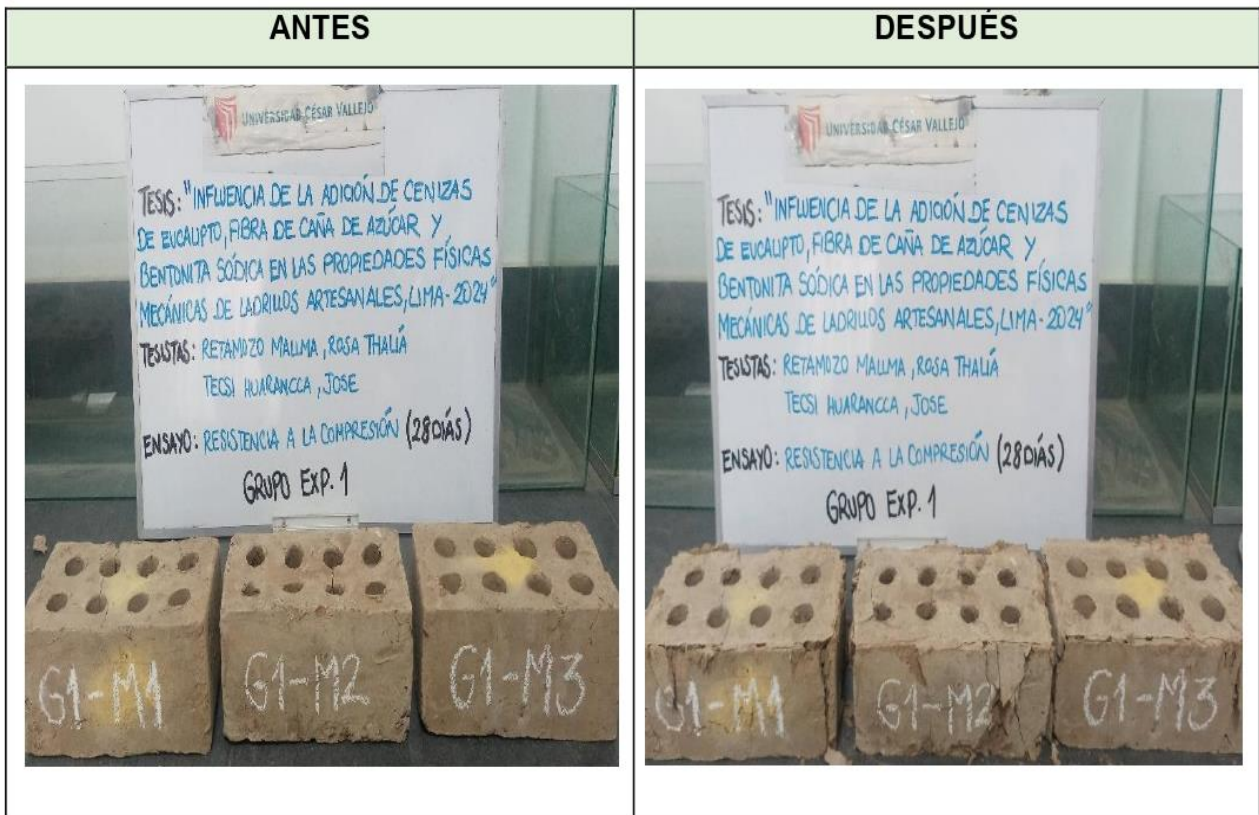 ANTES
DESPUÉS
UNIVERSIDAD CÉSAR VALLEJO
TESIS: "INFLUENCIA DE LA ADICIÓN DE CENIZAS
DE EUCALIPTO, FIBRA DE CAÑA DE AZÚCAR Y
BENTONITA SÓDICA EN LAS PROPIEDADES FÍSICAS
MECÁNICAS DE LADRILLOS ARTESANALES, LIMA-2024"
TESISTAS: RETAMOZO MALLMA, ROSA THALIÁ
TECSI HUARANCCA, JOSE
ENSAYO: RESISTENCIA A LA COMPRESIÓN (28 DÍAS)
GRUPO EXP. 1
G1-M1
G1-M2
G1-M3
UNIVERSIDAD CÉSAR VALLEJO
TESIS: "INFLUENCIA DE LA ADICIÓN DE CENIZAS
DE EUCALIPTO, FIBRA DE CAÑA DE AZÚCAR Y
BENTONITA SÓDICA EN LAS PROPIEDADES FÍSICAS
MECÁNICAS DE LADRILLOS ARTESANALES, LIMA-2024"
TESISTAS: RETAMOZO MALLMA, ROSA THALIÁ
TECSI HUARANCCA, JOSE
ENSAYO: RESISTENCIA A LA COMPRESIÓN (28 DÍAS)
GRUPO EXP. 1
G1-M1
G1-M2
G1-M3